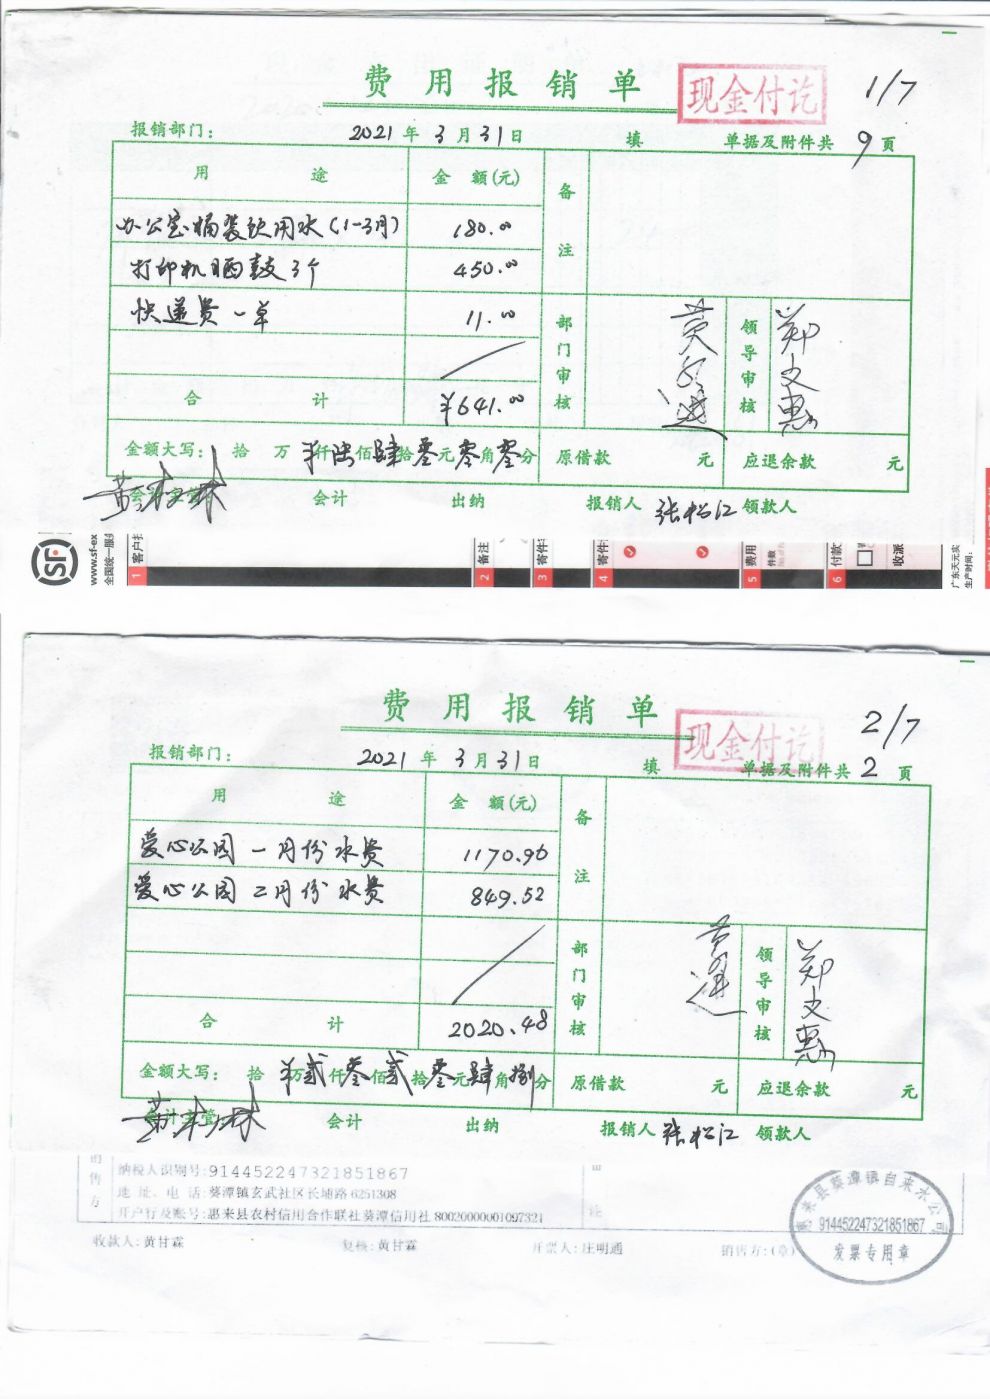 费用报销单
现金付讫
1/7
报销部门： 2021年3月31日 填 单据及附件共9页
用途 金额(元) 备注
办公室桶装饮用水(1-3月) 180.00
打印机晒鼓3个 450.00
快递费一单 11.00
部门审核 领导审核 郑文惠
合计 ¥641.00
金额大写： 拾 万 ¥仟陆佰肆拾零元零角零分 原借款 元 应退余款 元
会计主管 会计 出纳 报销人 张松江 领款人
SF
www.sf-ex
全国统一服
1 客户
2 备注
3 寄件
4 寄件
5 费用
件数
6 付款
收派
广东天元实
生产时间：
费用报销单
现金付讫
2/7
报销部门： 2021年3月31日 填 单据及附件共2页
用途 金额(元) 备注
爱心公园一月份水费 1170.96
爱心公园二月份水费 849.52
部门审核 领导审核 郑文惠
合计 2020.48
金额大写： 拾 ¥万贰仟零佰贰拾零元肆角捌分 原借款 元 应退余款 元
会计主管 会计 出纳 报销人 张松江 领款人
售方
纳税人识别号:914452247321851867
地 址、电 话:葵潭镇玄武社区长埔路6251308
开户行及账号:惠来县农村信用合作联社葵潭信用社 80020000001097321
收款人:黄甘霖 复核:黄甘霖 开票人:庄明通 销售方:(章)
惠来县葵潭镇自来水公司
914452247321851867
发票专用章